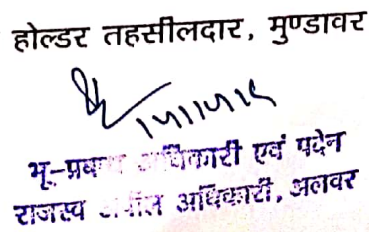 होल्डर तहसीलदार, मुण्डावर
भू-प्रबन्ध अधिकारी एवं पदेन
राजस्व अपील अधिकारी, अलवर